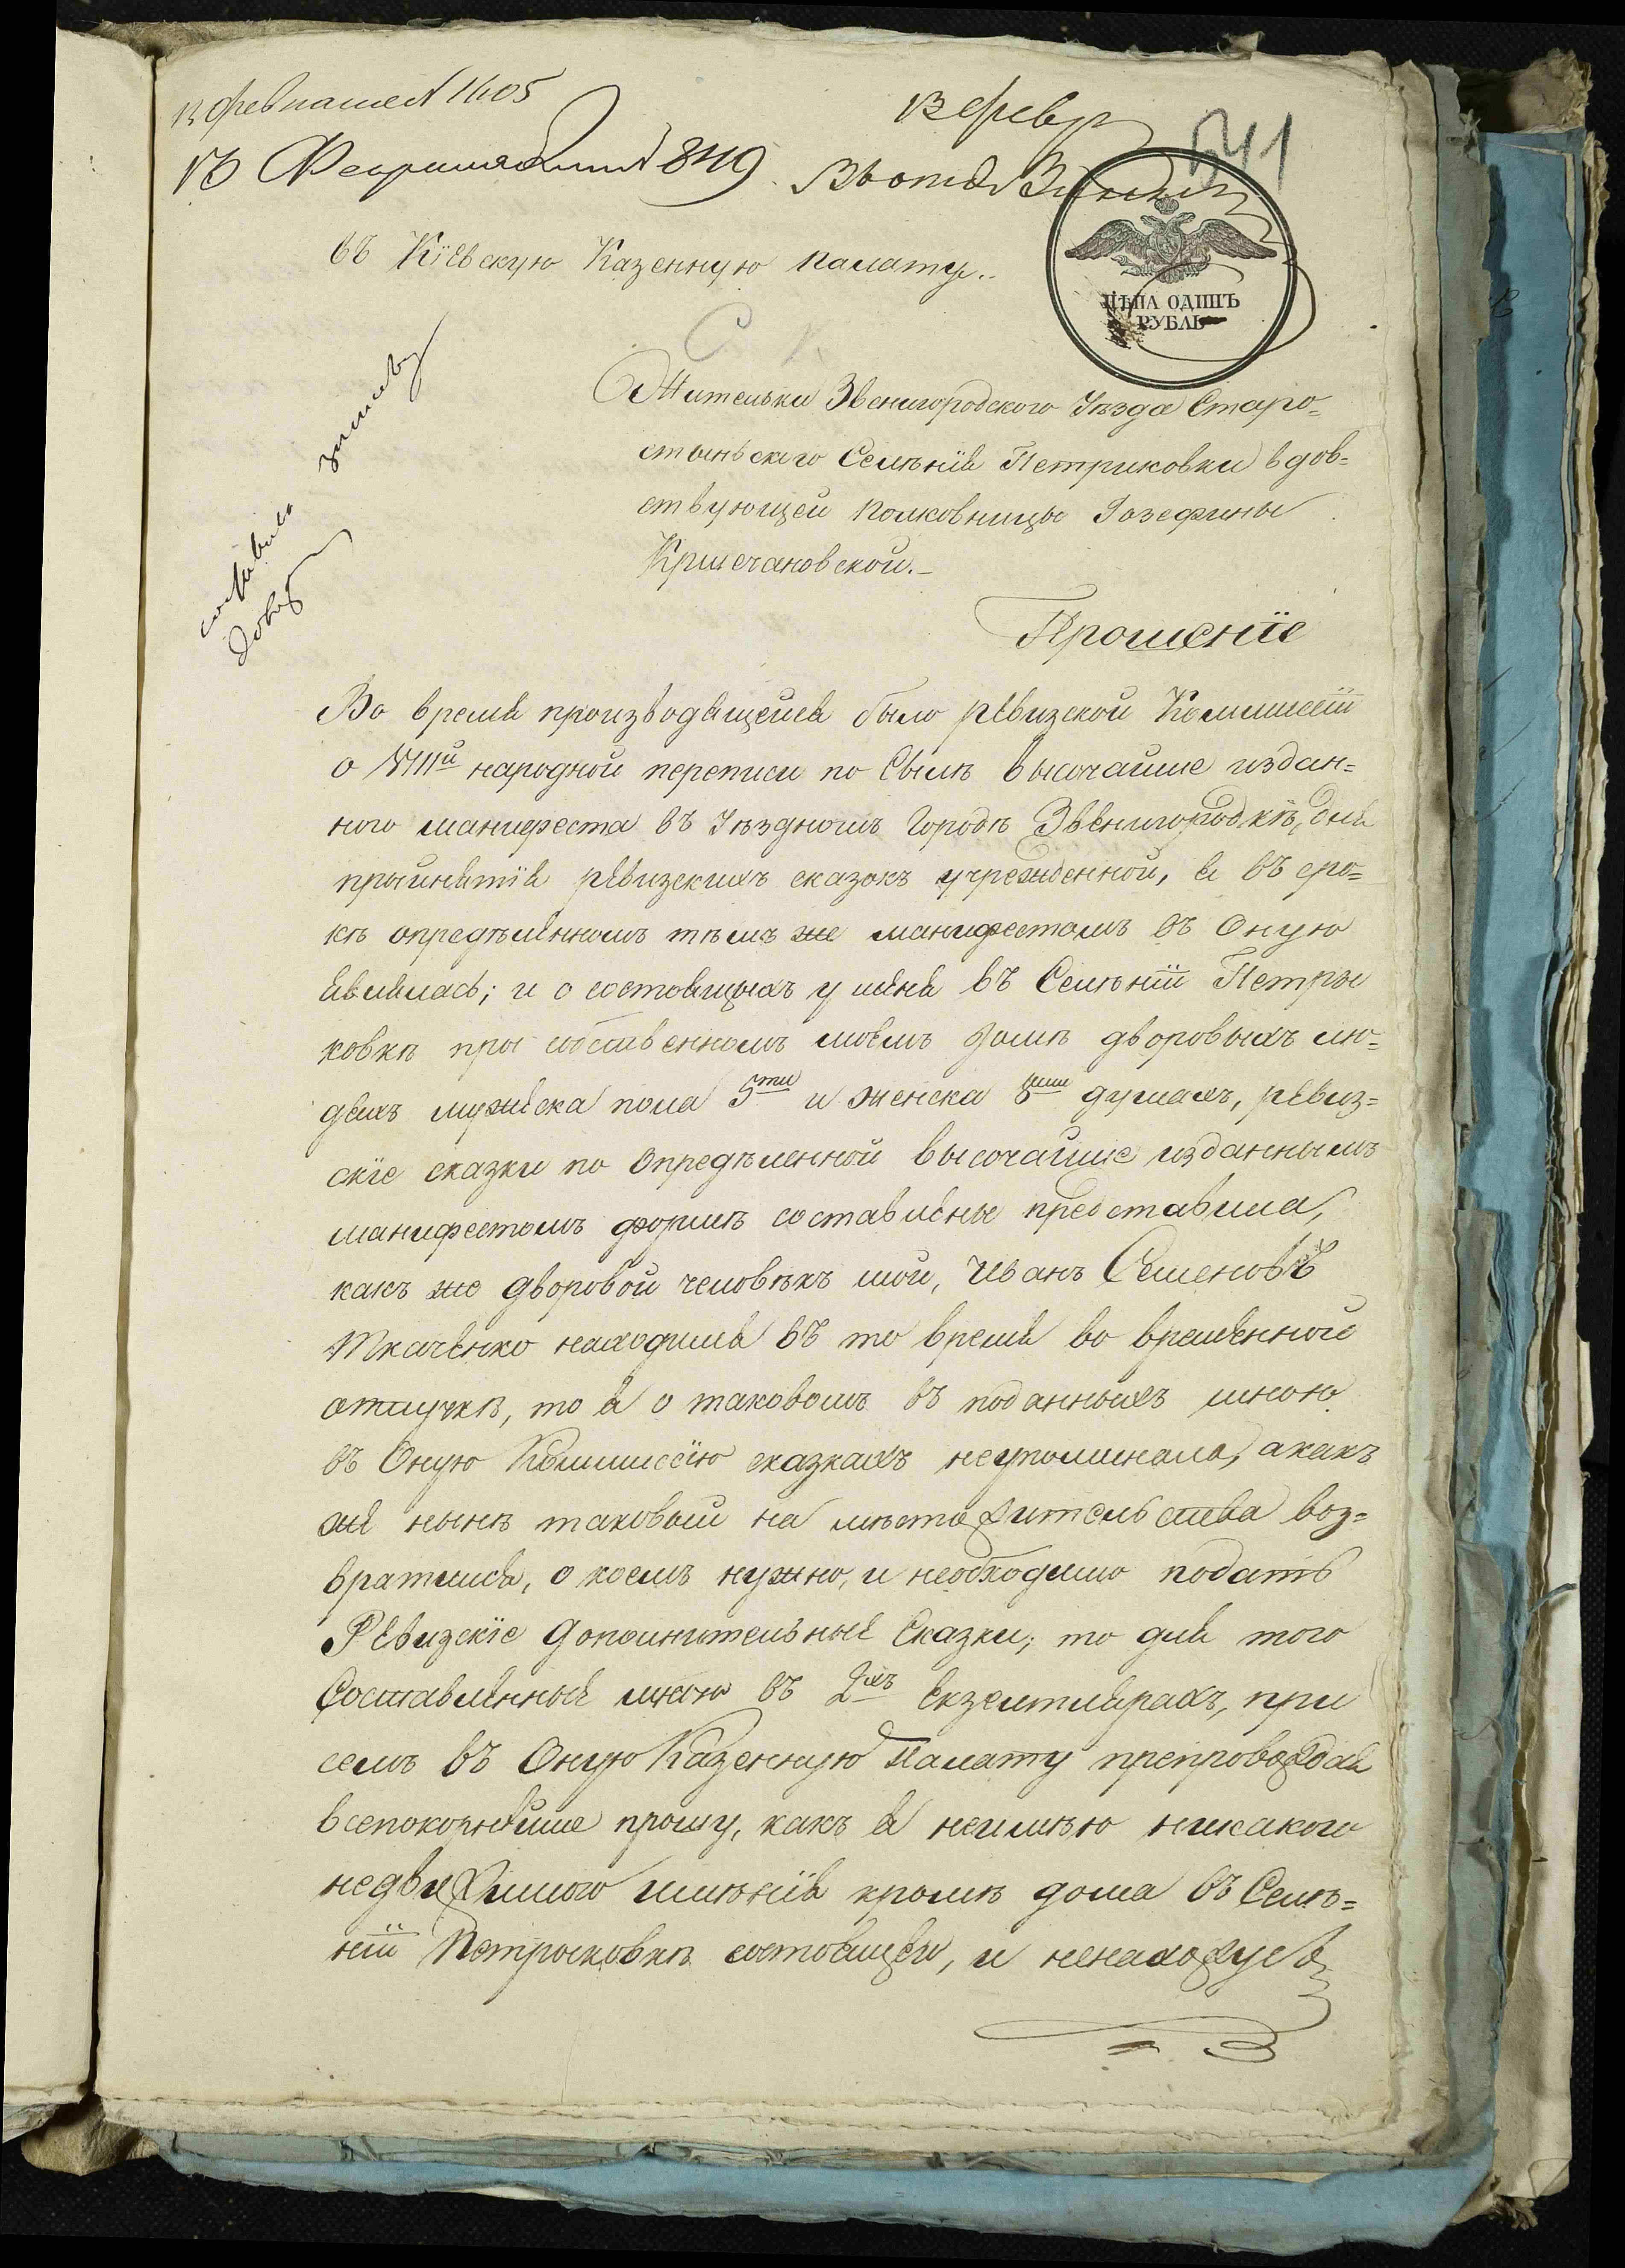 13 февр
541
въ Кіевскую Казенную палату..
ЦѢНА ОДИНЪ
РУБЛЬ
Жительки Звенигородского Уѣзда Старо=
стынского Селѣнія Петриковки вдов=
ствующей полковницы Іозефины
Кршечановской.-
Прошеніе
Во время производящейся было ревизской Коммиссіи
о VIIIй народной переписи по Силѣ высочайше издан=
ного манифеста въ Уѣздномъ Городѣ Звенигородкѣ, для
прыинятія ревизскихъ сказокъ учрежденной, я въ сро=
кѣ опредѣленномъ тѣмъ же манифестомъ въ Оную
явилась; и о состоящыхъ у меня въ Селѣніи Петры
ковкѣ при собственномъ моемъ домѣ дворовыхъ лю=
дяхъ мужеска пола 5ти и женска 8ми душахъ, ревиз=
скіе сказки по опредѣленной высочайше изданнымъ
манифестомъ формѣ составлены представила,
какъ же дворовой человѣкъ мой, Иванъ Семеновъ
Ткаченко находился въ то время во временной
отлучкѣ, то я о таковомъ въ поданныхъ мною
въ Оную Коммиссію сказкахъ неупоминала, а какъ
же нынѣ таковый на мѣсто жительства воз=
вратился, о коемъ нужно, и необходимо подать
Ревизскіе дополнительные Сказки; то для того
Составленные мною въ 2хъ екземплярахъ, при
семъ въ Оную Казенную палату препровождая
всепокорнѣйше прошу, какъ я неимѣю никакого
недвижимого имѣнія кромѣ дома въ Селѣ=
ніи Петрыковкѣ состоящего, и ненахожусь